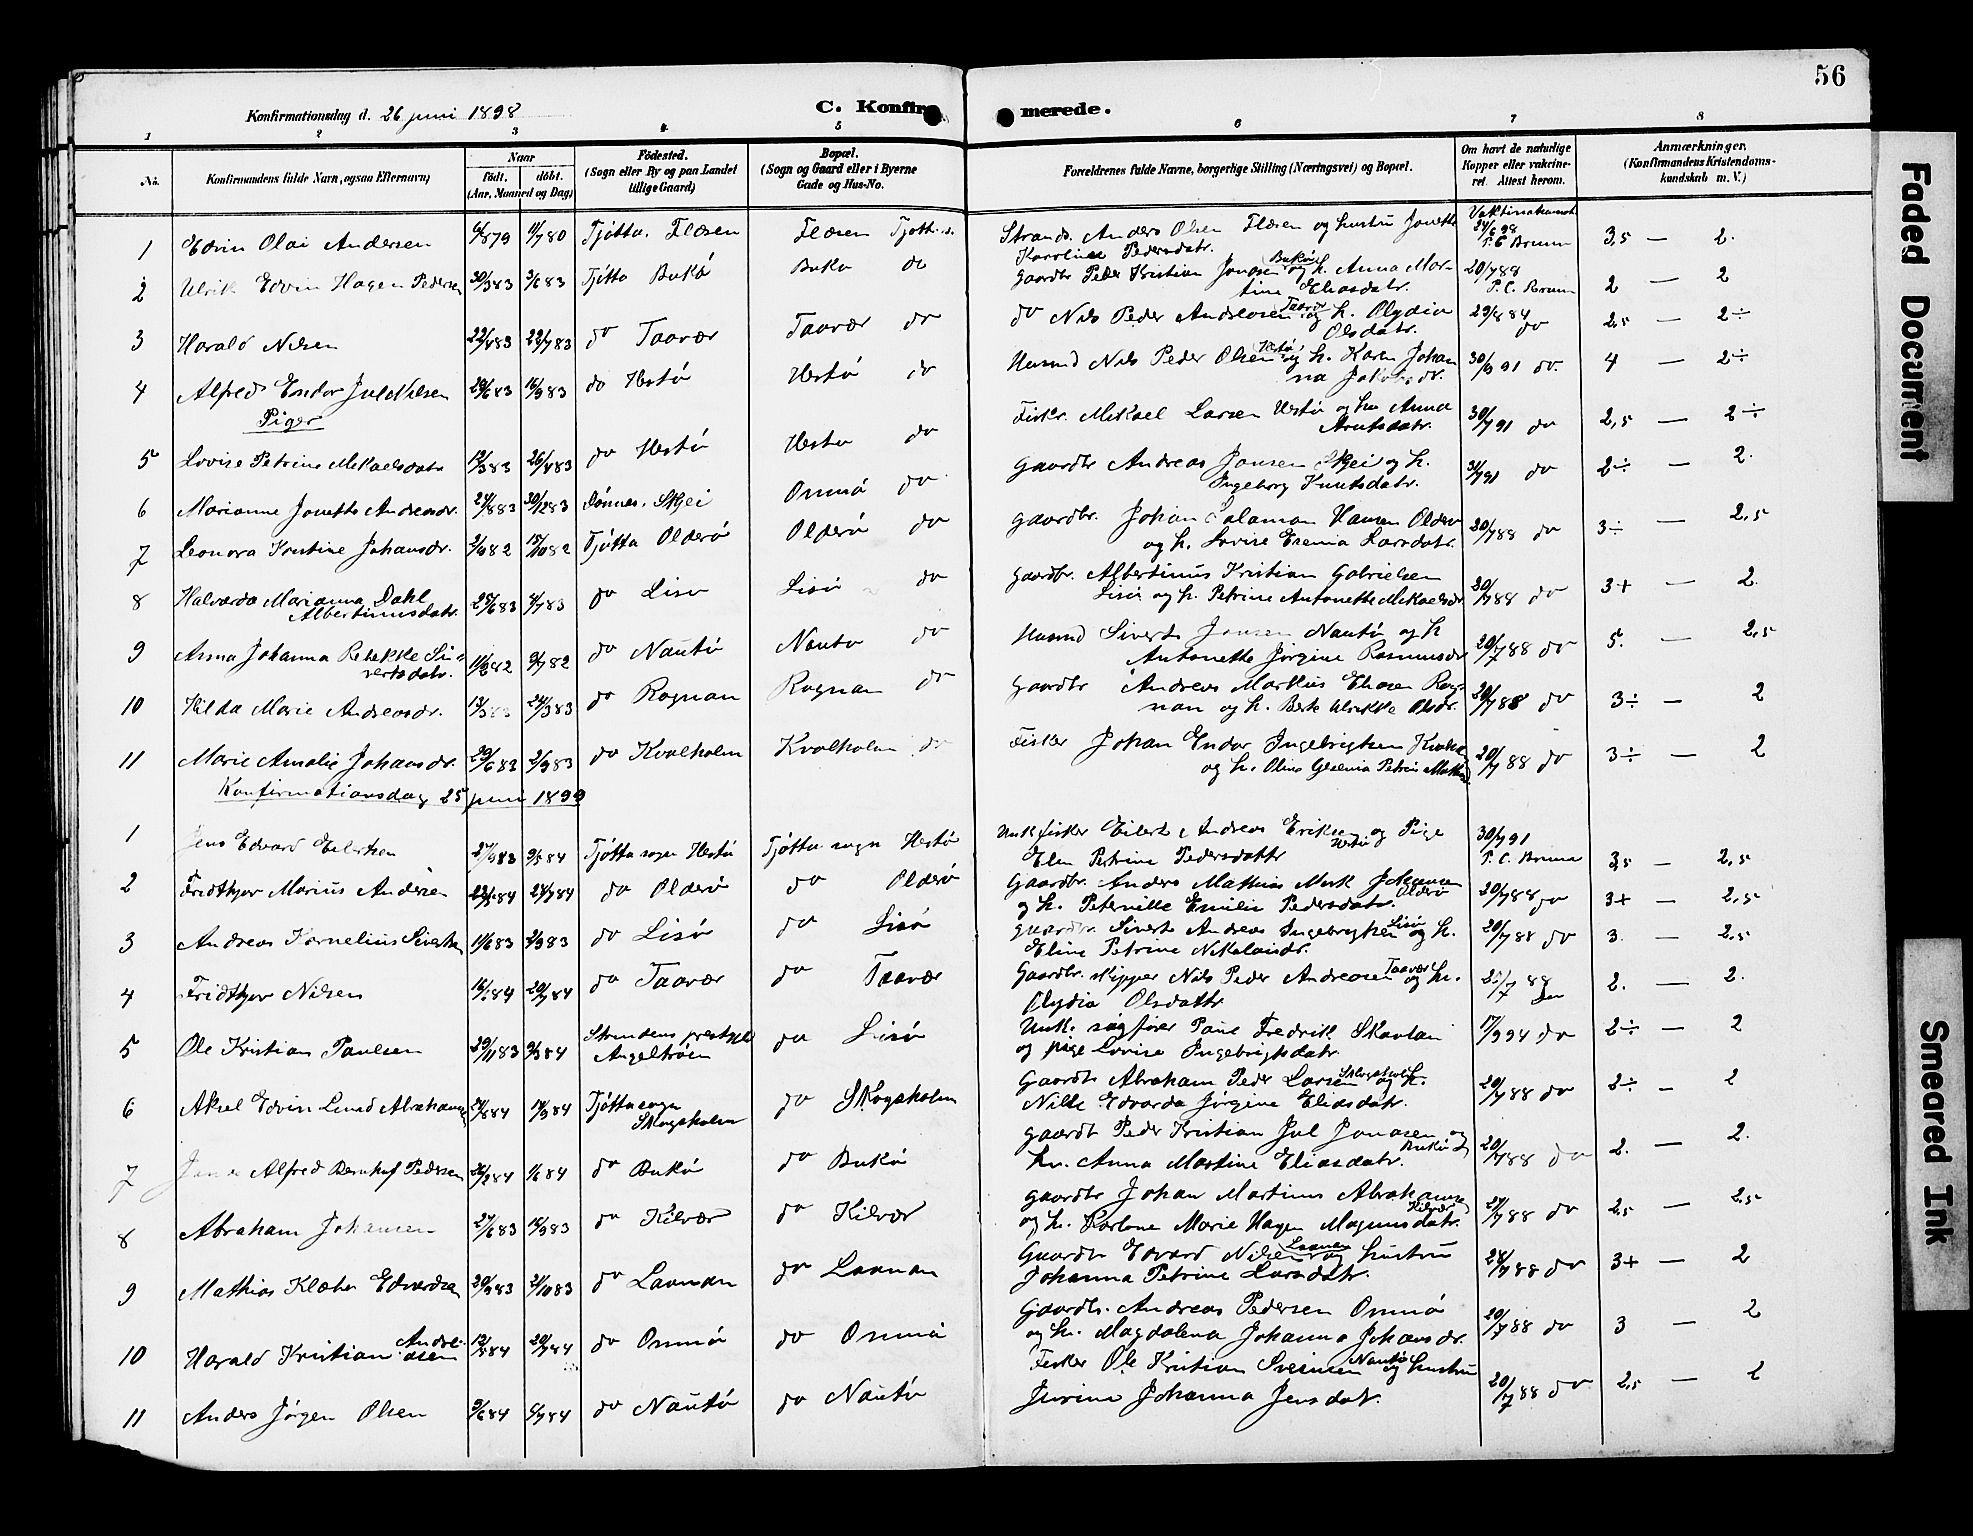 56
Konfirmationsdag d. 26 juni 1898
C. Konfirmerede.
1 2 3 4 5 6 7 8
No. Konfirmandens fulde Navn, ogsaa Efternavn) Naar født. døbt. (Aar, Maaned og Dag) Fødested. (Sogn eller By og paa Landet tillige Gaard) Bopæl. (Sogn og Gaard eller i Byerne Gade og Hus-No. Forældrenes fulde Navne, borgerlige Stilling (Næringsvei) og Bopæl. Om havt de naturlige Kopper eller vakcineret. Attest herom. Anmærkninger. (Konfirmandens Kristendomskundskab m. V.)
1 Edvin Olai Andersen 879 11/780 Tjøtta. Flæsen Flæsen Tjøtta s. Strands. Anders Olsen Flæsen og hustru Jonette
Karoline Pedersdatr. 24/6 98 P. C. Bruun 3,5 — 2.
2 Ulrik Edvin Hagen Pedersen 30/383 3/683 Tjøtta Bukø Buko do Gaardbr Peder Kristian Jonasen Bukø og h. Anna Mar-
tine Eliasdatr. 20/788 P. C. Bruun 2 — 2
3 Harald Nilsen 22/483 22/783 do Taavær Taavær do do Nils Peder Andreasen Taavær og h. Olydia
Olsdatr. 29/884 do 2,5 — 2÷
4 Alfred Endor Jul Nilsen 29/683 16/983 do Hestø Hestø do Husmd Nils Peder Olsen Hestø og h. Karen Johan
na Jakobsdr. 30/991 do. 4 — 2÷
Piger
5 Lovise Petrine Mikaelsdatr 12/383 26/483 do Hestø Hestø do Fisker. Mikael Larsen Hestø og hu Anna
Arntsdatr. 30/791 do 2,5 — 2÷
6 Marianne Jonette Andreasdr. 24/883 30/1283 Dønnes. Skjei Ommø do Gaardbr Andreas Jansen Skjei og h.
Ingeborg Knutsdatr. 31/791 do 2÷ — 2.
7 Leonora Kristine Johansdr. 2/982 15/1082 Tjøtta Olderø Olderø do Gaardbr. Johan Salamon Hansen Olderø
og h. Lovise Erenia Larsdatr. 20/788 do 3÷ — 2,5
8 Halvarda Marianna Dahl
Albertinusdatr. 28/683 4/783 do Lisø Lisø do Gaardbr. Albertinus Kristian Gabrielsen
Lisø og h. Petrine Antonette Mikaelsdr 30/788 do 3+ — 2.
9 Anna Johanna Rebekke Si-
vertsdatr. 11/682 9/782 do Nautø Nautø do Husmd Sivert Jansen Nautø og h
Antonette Jørgine Rasmusdr 20/788 do 5. — 2,5
10 Hilda Marie Andreasdr. 13/383 24/383 do Rognan Rognan do Gaardbr Andreas Markus Eliasen Rog-
nan og h. Berte Ulrikke Olsdr. 20/788 do 3÷ — 2
11 Marie Amalie Johansdr. 29/683 2/983 do Kvalholm Kvalholm do Fisker Johan Endor Ingebrigtsen
og h. Oline Petrine 20/788 do 3÷ — 2
Konfirmationsdag 25 juni 1899
1 Jens Edvard Eilertsen 27/983 9/584 Tjøtta sogn Hestø Tjøtta sogn Hestø Unk. fisker Eilert Andreas Eriksen Hestø og Pige
Elen Petrine Pedersdattr 30/791 P. C. Bruun 3,5 — 2,5
2 Fridthjov Marius Andersen 24/784 do Olderø do Olderø Gaardbr. Anders Mathias Johansen Olderø
og h. Peternille Emilie Pedersdatr. 20/788 do 3+ — 2,5
3 Andreas Kornelius Sivertsen 11/683 2/983 do Lisø do Lisø Gaardbr. Sivert Andreas Ingebrigtsen Lisø og h.
Eline Petrine Nikolaisdr. 20/788 do 3. — 2,5
4 Fridthjov Nilsen 20/784 do Taavær do Taavær Gaardbr. skipper Nils Peder Andreasen Taavær og h.
Olydia Olsdattr 2. — 2.
5 Ole Kristian Paulsen 29/1183 9/384 Strandens prestegj
do Lisø Unk. sagfører Paul Fredrik Skavlan
og pige Lovise Ingebrigtsdatr 17/994 do 2÷ — 2
6 Aksel Edvin Lund Abrahamsen 14/984 Tjøtta sogn
Skogsholm do Skogsholm Gaardb Abraham Peder Larsen Skogsholm og h.
Nille Edvarda Jørgine Eliasdatr. 20/788 do 2÷ — 2
7 Alfred Bernhof Pedersen 26/284 1/684 do Bukø do Bukø Gaardb Peder Kristian Jul Jonasen og
hu. Anna Martine Eliasdatr. Bukø 20/788 do 2. — 2.
8 Abraham Johansen 27/683 15/983 do Kilvær do Kilvær Gaardbr Johan Martinus Abrahamsen
og h. Karlone Marie Hagen Magnusdatr. Kilvær 28/788 do 2,5 — 2,5
9 Mathias Klæbo Edvardsen 20/983 21/1083 do Laanan do Laanan Gaardbr Edvard Nilsen Laanan og hustru
Johanna Petrine Larsdatr. 28/788 do 3+ — 2
10 Harald Kristian Andre-
asen 12/484 20/784 do Ommø do Ommø Gaardb. Andreas Pedersen Ommø
og h. Magdalena Johanna Johansdr. 20/788 do 3 — 2
11 Anders Jørgen Olsen 9/684 6/784 do Nautø do Nautø Fisker Ole Kristian Svensen Nautø og hustru
Jorine Johanna Jensdat. 20/788 do 2,5 — 2
Faded Document
Smeared Ink